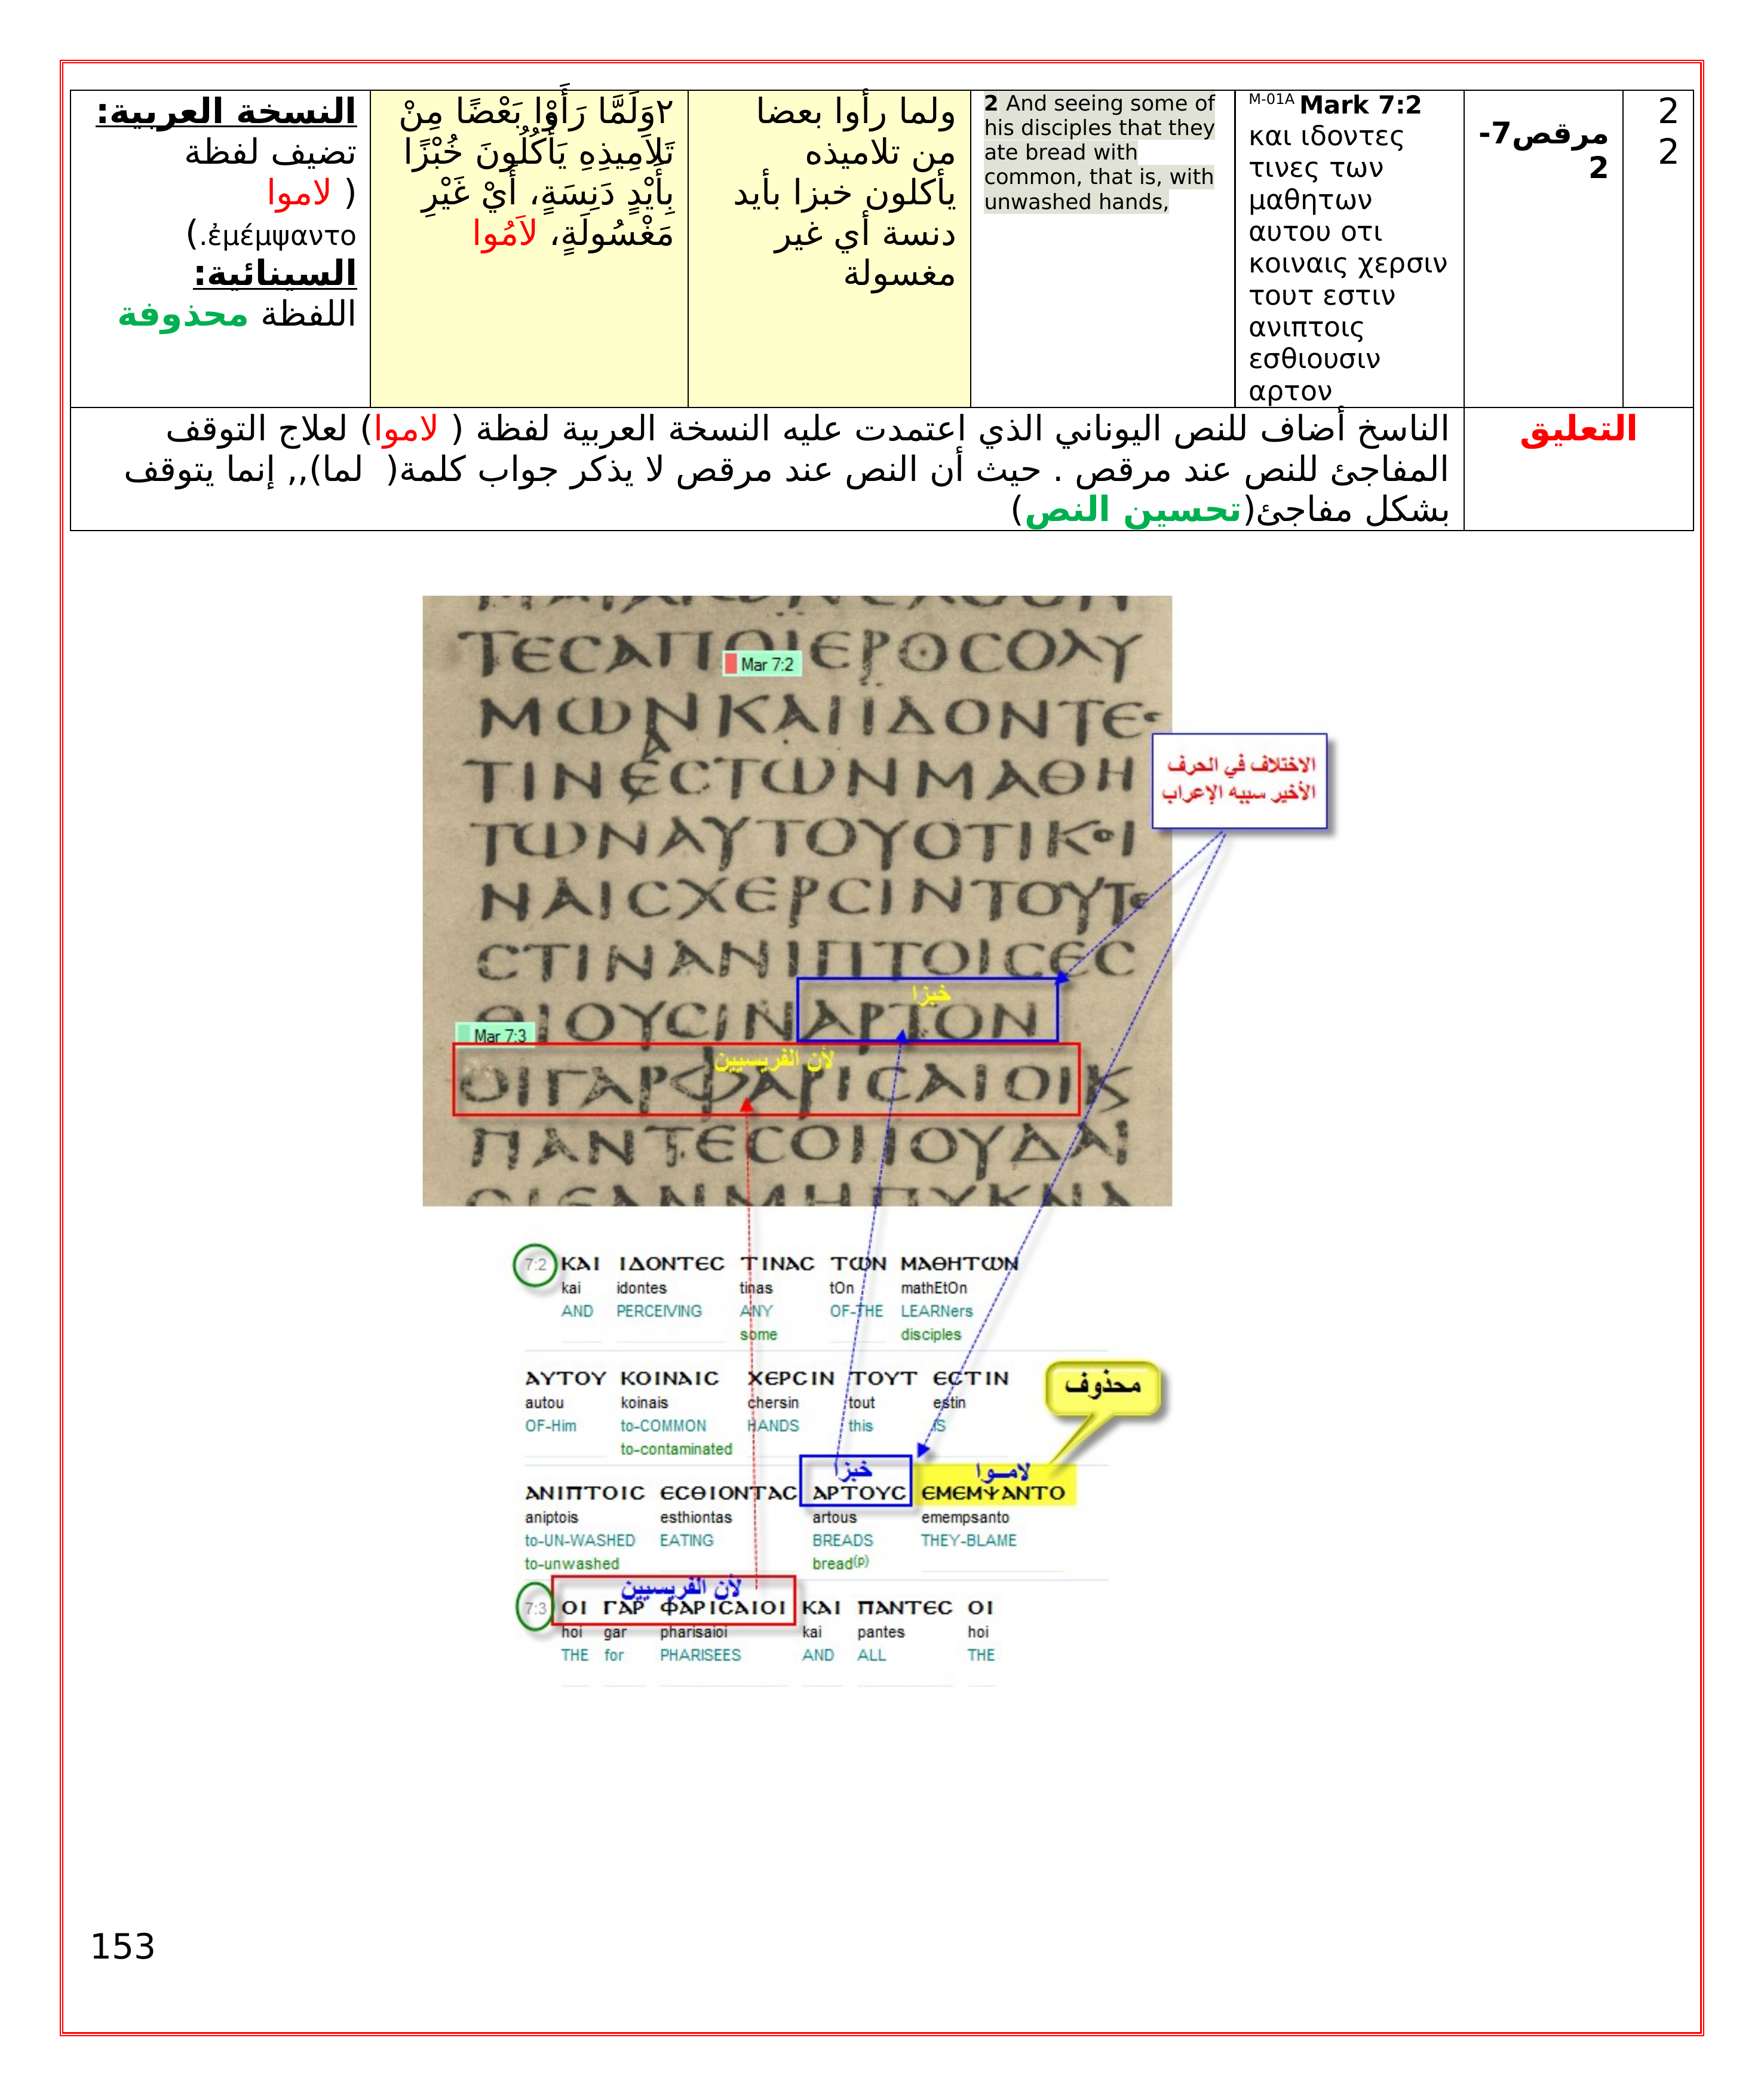 2
2
مرقص7-
2
M-01A Mark 7:2
και ιδοντες
τινες των
μαθητων
αυτου οτι
κοιναις χερσιν
τουτ εστιν
ανιπτοις
εσθιουσιν
αρτον
2 And seeing some of
his disciples that they
ate bread with
common, that is, with
unwashed hands,
ولما رأوا بعضا
من تلاميذه
يأكلون خبزا بأيد
دنسة أي غير
مغسولة
٢وَلَمَّا رَأَوْا بَعْضًا مِنْ
تَلاَمِيذِهِ يَأْكُلُونَ خُبْزًا
بِأَيْدٍ دَنِسَةٍ، أَيْ غَيْرِ
مَغْسُولَةٍ، لاَمُوا
النسخة العربية:
تضيف لفظة
( لاموا
ἐμέμψαντο.)
السينائية:
اللفظة محذوفة
التعليق
الناسخ أضاف للنص اليوناني الذي اعتمدت عليه النسخة العربية لفظة ( لاموا) لعلاج التوقف
المفاجئ للنص عند مرقص . حيث أن النص عند مرقص لا يذكر جواب كلمة( لما),, إنما يتوقف
بشكل مفاجئ(تحسين النص)
ΤΕCΑΠΟΙΕΡΟCΟΛΥ
Mar 7:2
ΜΩΝΚΑΙΙΔΟΝΤΕC
ΤΙΝΕCΤΩΝΜΑΘΗ
الاختلاف في الحرف
الأخير سببه الإعراب
ΤΩΝΑΥΤΟΥΟΤΙΚΟΙ
ΝΑΙCΧΕΡCΙΝΤΟΥΤΕ
CΤΙΝΑΝΙΠΤΟΙCΕC
خبزا
ΘΙΟΥCΙΝΑΡΤΟΝ
Mar 7:3
لأن الفريسيين
ΟΙΓΑΡΦΑΡΙCΑΙΟΙΚ
ΠΑΝΤΕCΟΙΙΟΥΔΑΙ
7:2 ΚΑΙ ΙΔΟΝΤΕC ΤΙΝΑC ΤΩΝ ΜΑΘΗΤΩΝ
kai idontes tinas tOn mathEtOn
AND PERCEIVING ANY OF-THE LEARNers
some disciples
ΑΥΤΟΥ ΚΟΙΝΑΙC ΧΕΡCΙΝ ΤΟΥΤ ΕCΤΙΝ
محذوف
autou koinais chersin tout estin
OF-Him to-COMMON HANDS this IS
to-contaminated
خبزا لامــوا
ΑΝΙΠΤΟΙC ΕCΘΙΟΝΤΑC ΑΡΤΟΥC ΕΜΕΜΨΑΝΤΟ
aniptois esthiontas artous emempsanto
to-UN-WASHED EATING BREADS THEY-BLAME
to-unwashed bread(p)
لأن الفريسيين
7:3 ΟΙ ΓΑΡ ΦΑΡΙCΑΙΟΙ ΚΑΙ ΠΑΝΤΕC ΟΙ
hoi gar pharisaioi kai pantes hoi
THE for PHARISEES AND ALL THE
153